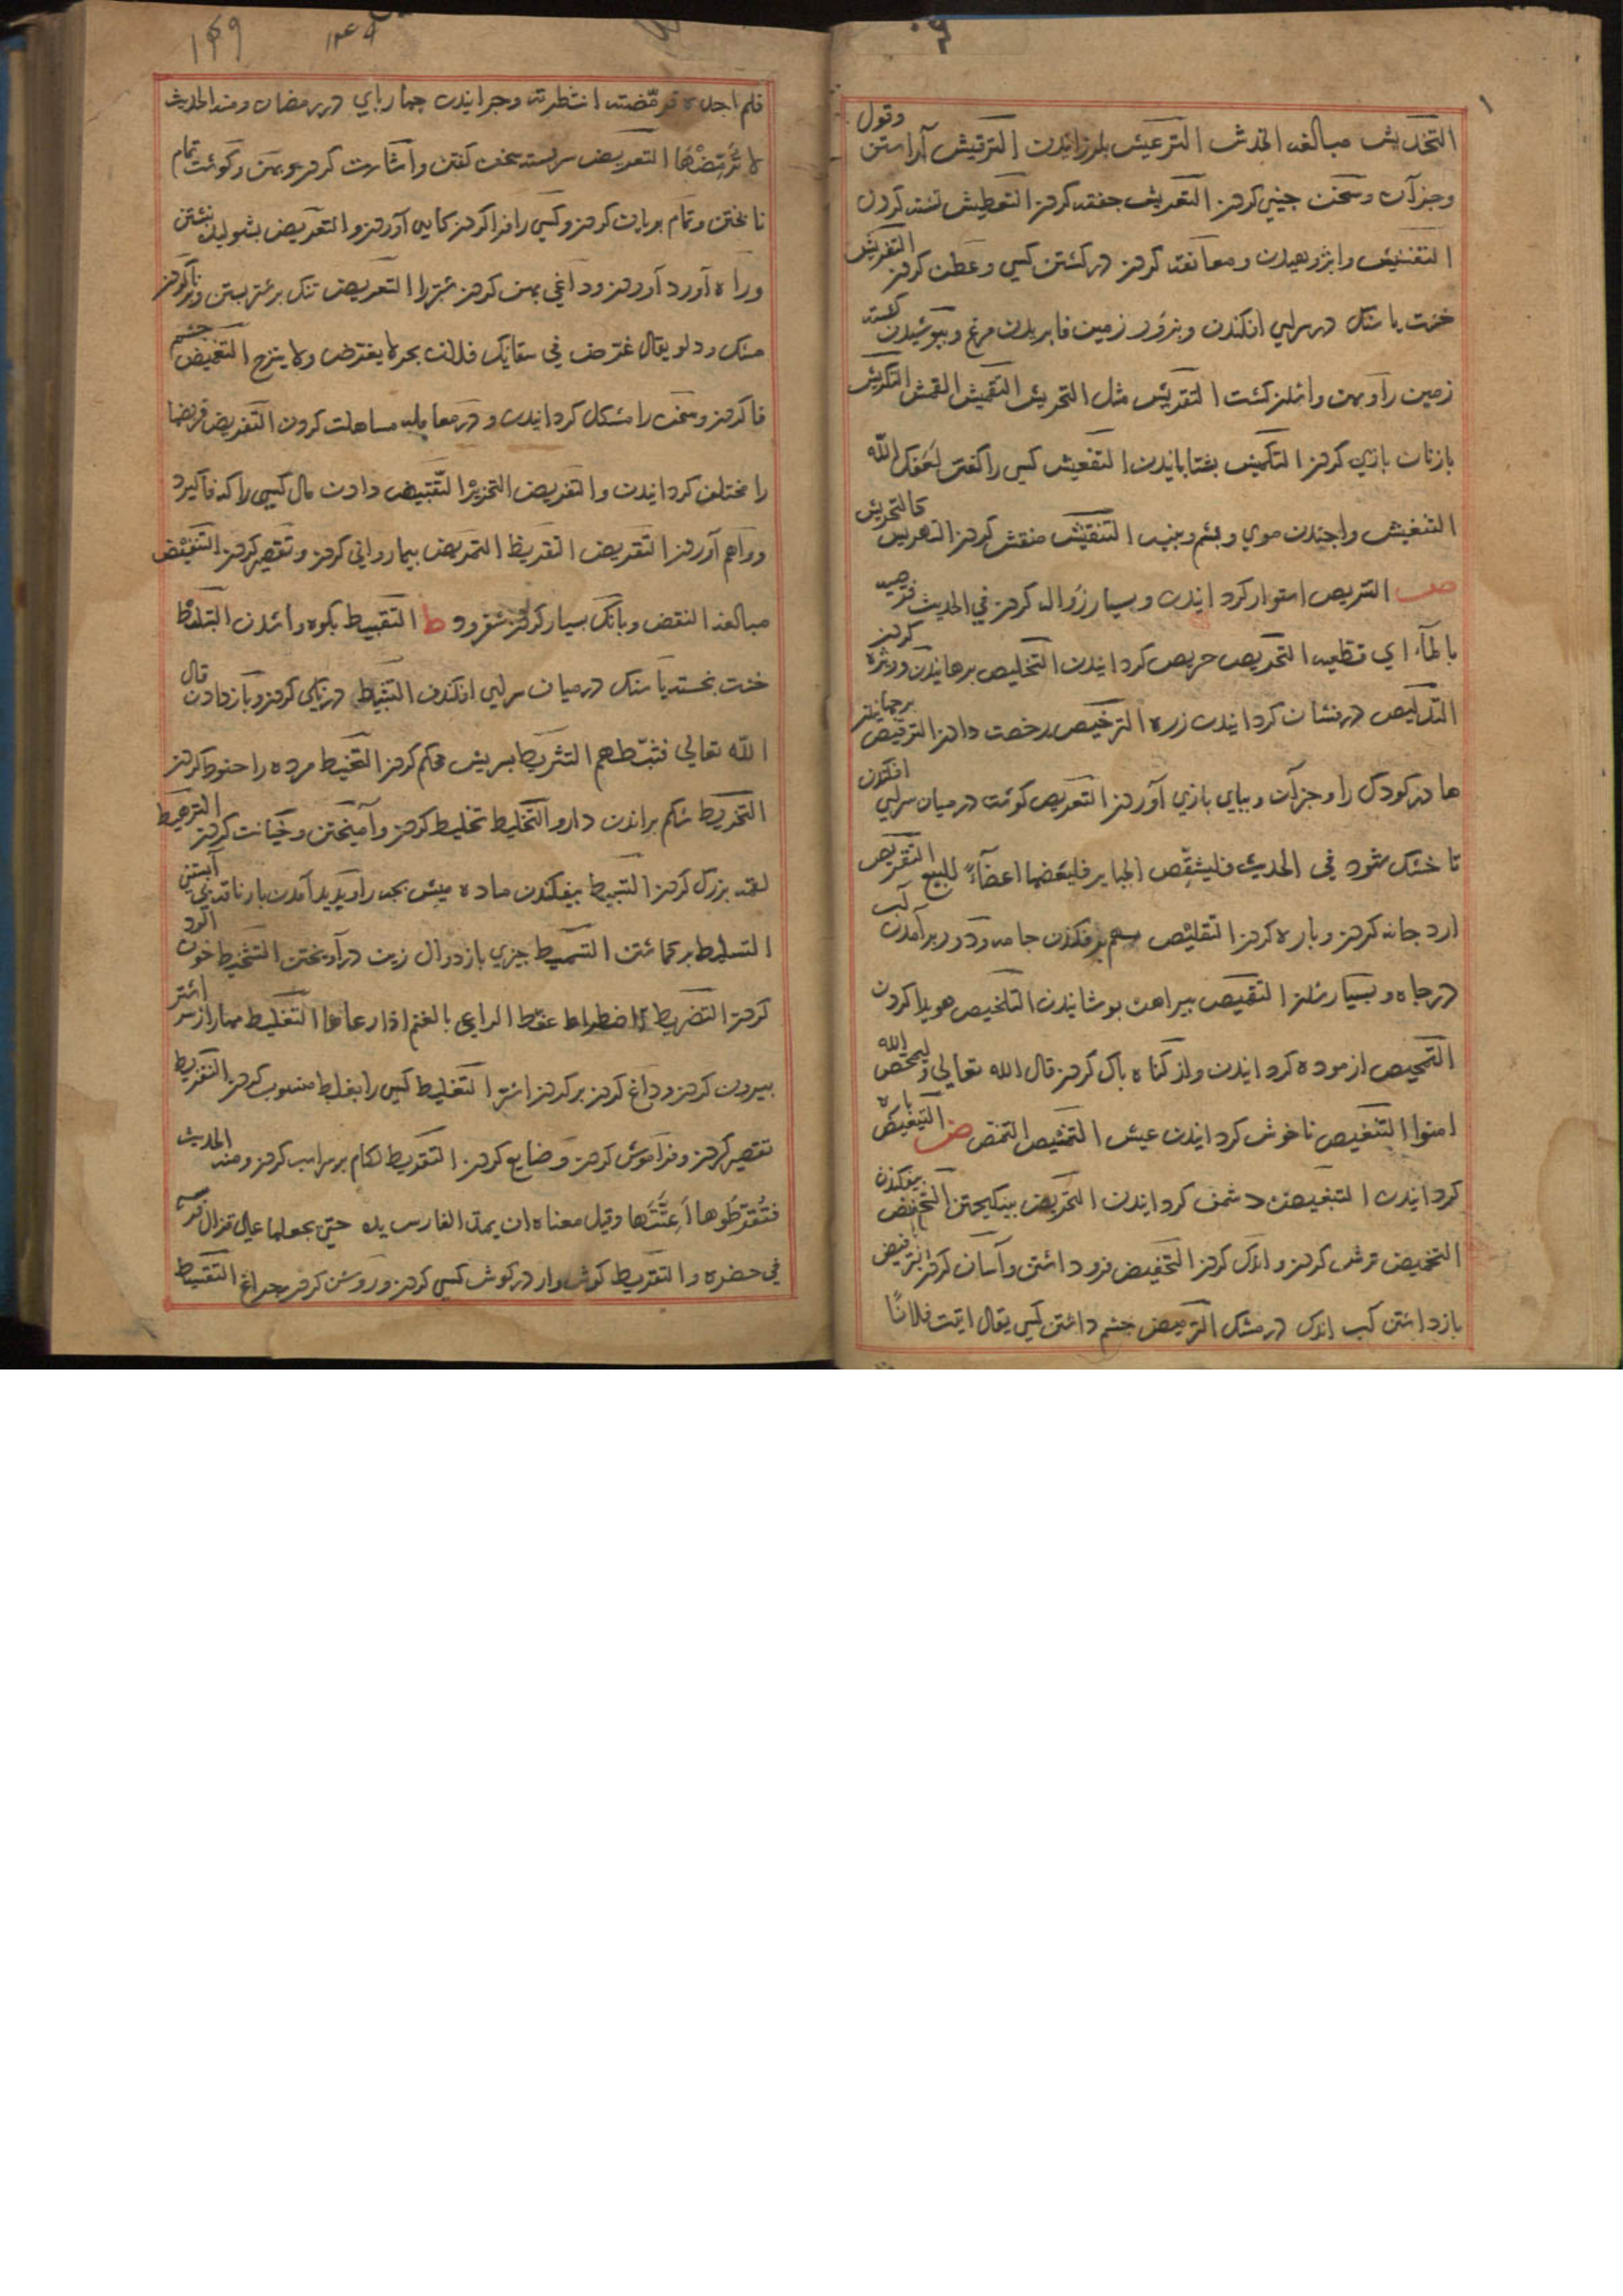 التخدیش مبالغه الخدش الترعیش بلرزانیدن الترقیش آراستن وقول
وجز آن وسخن جینی کردن التعریش جفته کردن التعطیش تشنه کردن
التفتیش وایژوهیدن ومعانقه کردن در کشتن کسی وعطف کردن التفریش
خشت یا سنک در سرای افکندن وبزور زمین فا بریدن مرغ وبپوشیدن کشته
زمین را وپهن واشدن کشت التقریش مثل التحریش التقمیش القمش التکریش
بازنان بازی کردن التکمیش بشتابانیدن التنعیش کسی را کفتن نعشک الله
التنفیش واجیدن موی وپشم وپنبه التنقیش منقش کردن التهریش کالتحریش
ص التریص استوار کردانیدن وبسیار زواله کردن فی الحدیث فرصیه
بالماء ای قطعیه التحریص حریص کردانیدن التخلیص برهانیدن وویژه کردن
التدلیص درفشان کردانیدن زره الترخیص رخصت دادن الترقیص برجهانیدن
مادر کودک را وجز آن وببای بازی آوردن التعریص کوشت در میان سرای افکندن
تا خشک شود فی الحدیث فلیشقص الخنازیر فلیعضها اعضاء للبیع التقریص
ارد جانه کردن وباره کردن التقلیص بهم برفکندن جامه ودور برآمدن آب
در جاه وبسیار شدن التقمیص پیراهن بوشانیدن التلخیص هویدا کردن
التمحیص ازموده کردانیدن واز کناه باک کردن قال الله تعالی ولیمحص الله
امنوا التنغیص ناخوش کردانیدن عیش التنمیص النمص ض التبعیض باره
کردانیدن التبغیض دشمن کردانیدن التحریض بینکیختن التخفیض بیفکندن
التحمیض ترش کردن واندک کردن التخفیض فرود داشتن وآسان کردن الترفیض
بازداشتن آب اندک در مشک الترمیض چشم داشتن کسی یقال اتیت فلانا
فلم اجده فرمضته انتظرته وچرانیدن چهاربای در رمضان ومنه الحدیث
لا ترمضها التعریض سربسته سخن کفتن واشارت کردن وپهن وکوشت تمام
نابختن وتمام بریان کردن وکسی را فرا کردن کابی آوردن والتعریض بشولیده نبشتن
وراه آورد آوردن وداغی پهن کردن شتر را التعریض تنک برشتر بستن وبر کردن
مشک ودلو یقال غرض فی سقائک فلان بحر لا یغرض ولا ینزح التغمیض چشم
فا کردن وسخن را مشکل کردانیدن ودر معامله مساهلت کردن التفریض فریضها
را مختلف کردانیدن والتفریض التحزیز التقبیض دادن مال کسی را که فا کیرد
وواهم آوردن التقریض التقریظ التمریض بیماروانی کردن وتقصیر کردن التنقیض
مبالغه النقض وبانک بسیار کردن شتر وو ط التبقیط بکوه واشدن التبلیط
خشت بخسته یا سنک در میان سرای افکندن التثبیط درنکی کردن وبازدادن قال
الله تعالی فثبطهم التشریط بسریش محکم کردن التحنیط مرده را حنوط کردن
التخریط شکم براندن دارو التخلیط تخلیط کردن وآمیختن وخیانت کردن الترهیط
لقمه بزرک کردن التسبیط بیفکندن ماده میش بچه را وبدید آمدن بار ناقه بی آبستنی
التسلیط برکماشتن التسمیط چیزی بازدوال زین درآویختن التشحیط خون آلود
کردن التضریط الاضطراط عفط الراعی بالغنم اذا رعاها التعلیط مهار از سر اشتر
بیرون کردن وداغ کردن بر کردن اشتر التغلیط کسی را بغلط منسوب کردن التفریط
تقصیر کردن وفراموش کردن وضایع کردن التقریط لکام بر سر اسب کردن ومنه الحدیث
فتقرطوها اعنتها وقیل معناه ان یمد الفارس یده حتی یجعلها علی قذال فرسه
فی حضره والتقریط کوشوار در کوش کسی کردن وروشن کردن چراغ التقسیط